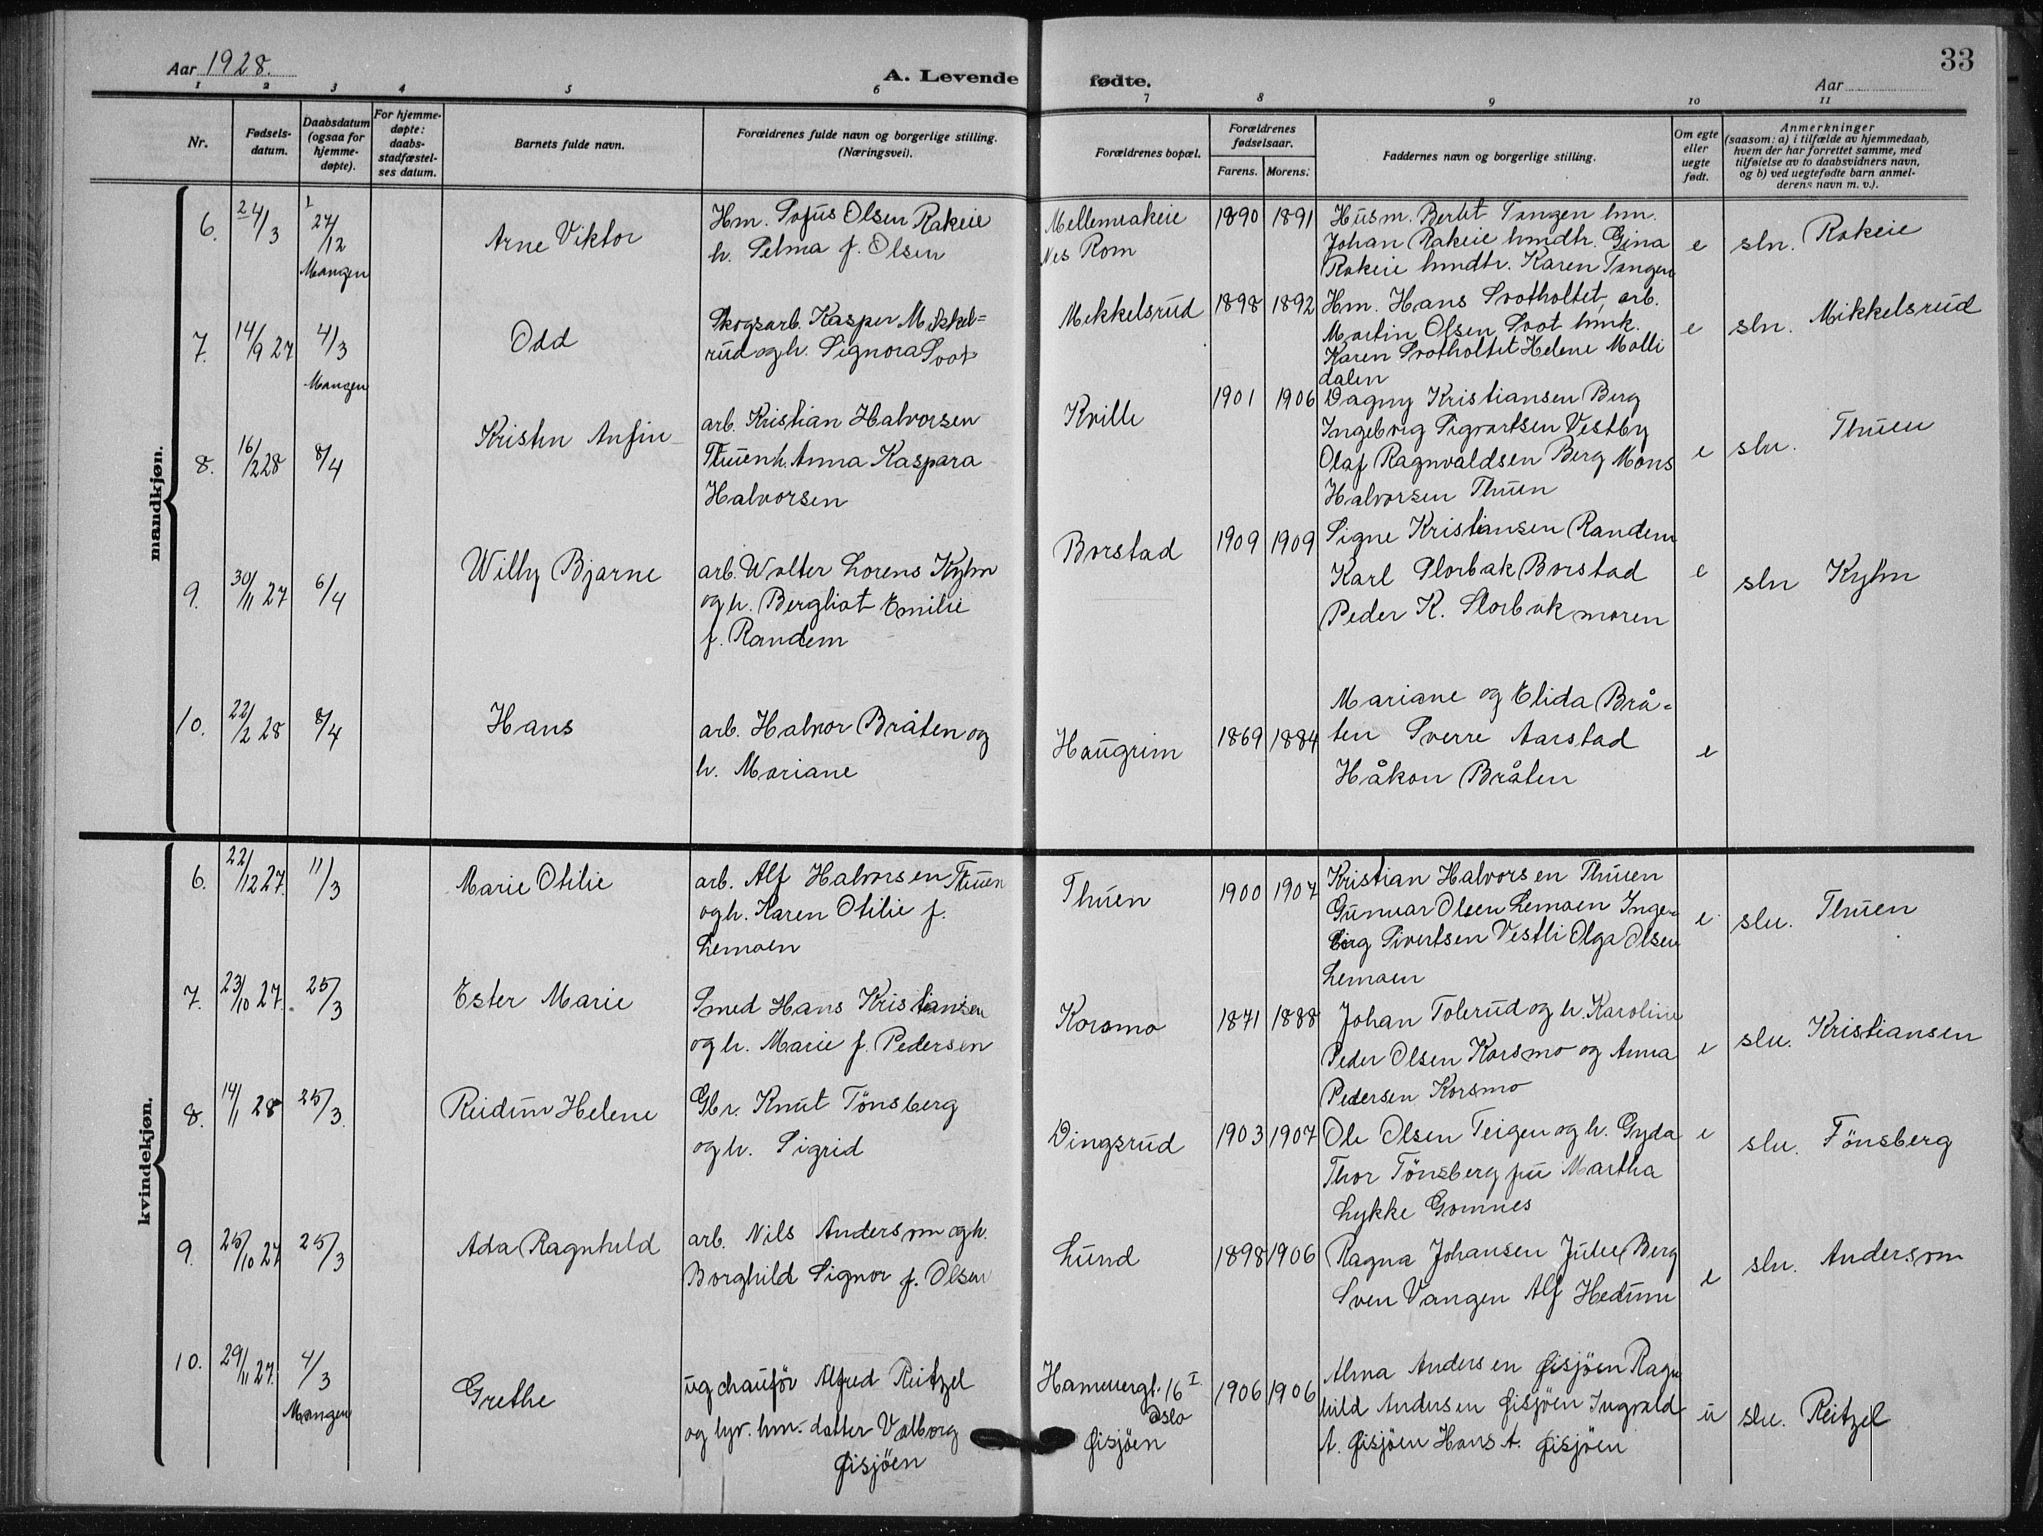 Aar 1928.
A. Levende fødte.
Aar
33
1 2 3 4 5 6 7 8 9 10 11
Nr.
Fødsels-
datum.
Daabsdatum
(ogsaa for
hjemme-
døpte).
For hjemme-
døpte:
daabs-
stadfæstel-
ses datum.
Barnets fulde navn.
Forældrenes fulde navn og borgerlige stilling.
(Næringsvei).
Forældrenes bopæl.
Forældrenes
fødselsaar.
Farens. Morens.
Faddernes navn og borgerlige stilling.
Om egte
eller
uegte
født.
Anmerkninger
(saasom: a) i tilfælde av hjemmedaab,
hvem der har forrettet samme, med
tilføielse av to daabsvidners navn,
og b) ved uegtefødte barn anmel-
derens navn m. v.).
mandkjøn.
6.
24/3
27/12
Mangen
Arne Viktor
Hm. Sofus Olsen Rakeie
h. Selma f. Olsen
Mellemrakeie
Nes Rom
1890 1891
Husm. Berht Tangen hm.
Johan Rakeie hmdtr. Gina
Rakeie hmdtr. Karen Tangen
e
sln. Rakeie
7.
14/9 27
4/3
Mangen
Odd
Skogsarb. Kasper Mikkel=
rud og h. Signora Svot
Mikkelsrud
1898 1892
Hm. Hans Svotholtet, arb.
Martin Olsen Svot hmk.
Karen Svotholtet Helene Molli
dalen
e
sln. Mikkelsrud
8.
16/2 28
8/4
Kristen Anfin
arb. Kristian Halvorsen
Thuen h. Anna Kaspara
Halvorsen
Kville
1901 1906
Dagny Kristiansen Berg
Ingeborg Sigvartsen Vestby
Olaf Ragnvaldsen Berg Mons
Halvorsen Thuen
e
sln. Thuen
9.
30/11 27
6/4
Willy Bjarne
arb. Walter Lorens Kylm
og h. Bergliot Emilie
f. Randem
Borstad
1909 1909
Signe Kristiansen Randem
Karl Slorbak Borstad
Peder K. Slorbak moren
e
sln Kylm
10.
22/2 28
8/4
Hans
arb. Halvor Bråten og
h. Mariane
Haugrim
1869 1884
Mariane og Elida Brå=
ten Sverre Aarstad
Håkon Bråten
e
kvindekjøn.
6.
22/12 27.
11/3
Marie Otilie
arb. Alf Halvorsen Thuen
og h. Karen Otilie f.
Lemoen
Thuen
1900 1907
Kristian Halvorsen Thuen
Gunvar Olsen Lemoen Inge-
borg Sivertsen Vestli Olga Olsen
Lemoen
e
sln. Thuen
7.
23/10 27.
25/3
Ester Marie
Smed Hans Kristiansen
og h. Marie f. Pedersen
Korsmo
1871 1888
Johan Tolerud og h. Karoline
Peder Olsen Korsmo og Anna
Pedersen Korsmo
e
sln. Kristiansen
8.
14/1 28
25/3.
Reidun Helene
Gbr. Knut Tönsberg
og h. Sigrid
Dingsrud
1903 1907
Ole Olsen Teigen og h. Gyda
Thor Tönsberg pu Martha
Lykke Gomnes
e
sln. Tönsberg
9.
25/10 27
25/3
Ada Ragnhild
arb. Nils Anderson og h.
Borghild Signor f. Olsen
Lund
1898 1906
Ragna Johansen Julie Berg
Sven Vangen Alf Hedum
e
sln. Anderson
10.
29/11 27.
4/3
Mangen
Grethe
ug chauför Alfred Reitzel
og tyr. hm. datter Valborg
Øisjöen
Hammergt. 16 I
Oslo
Øisjöen
1906 1906
Alma Andersen Øisjöen Ragn
hild Andersen Øisjöen Ingvald
A. Øisjöen Hans A. Øisjöen
u
sln. Reitzel